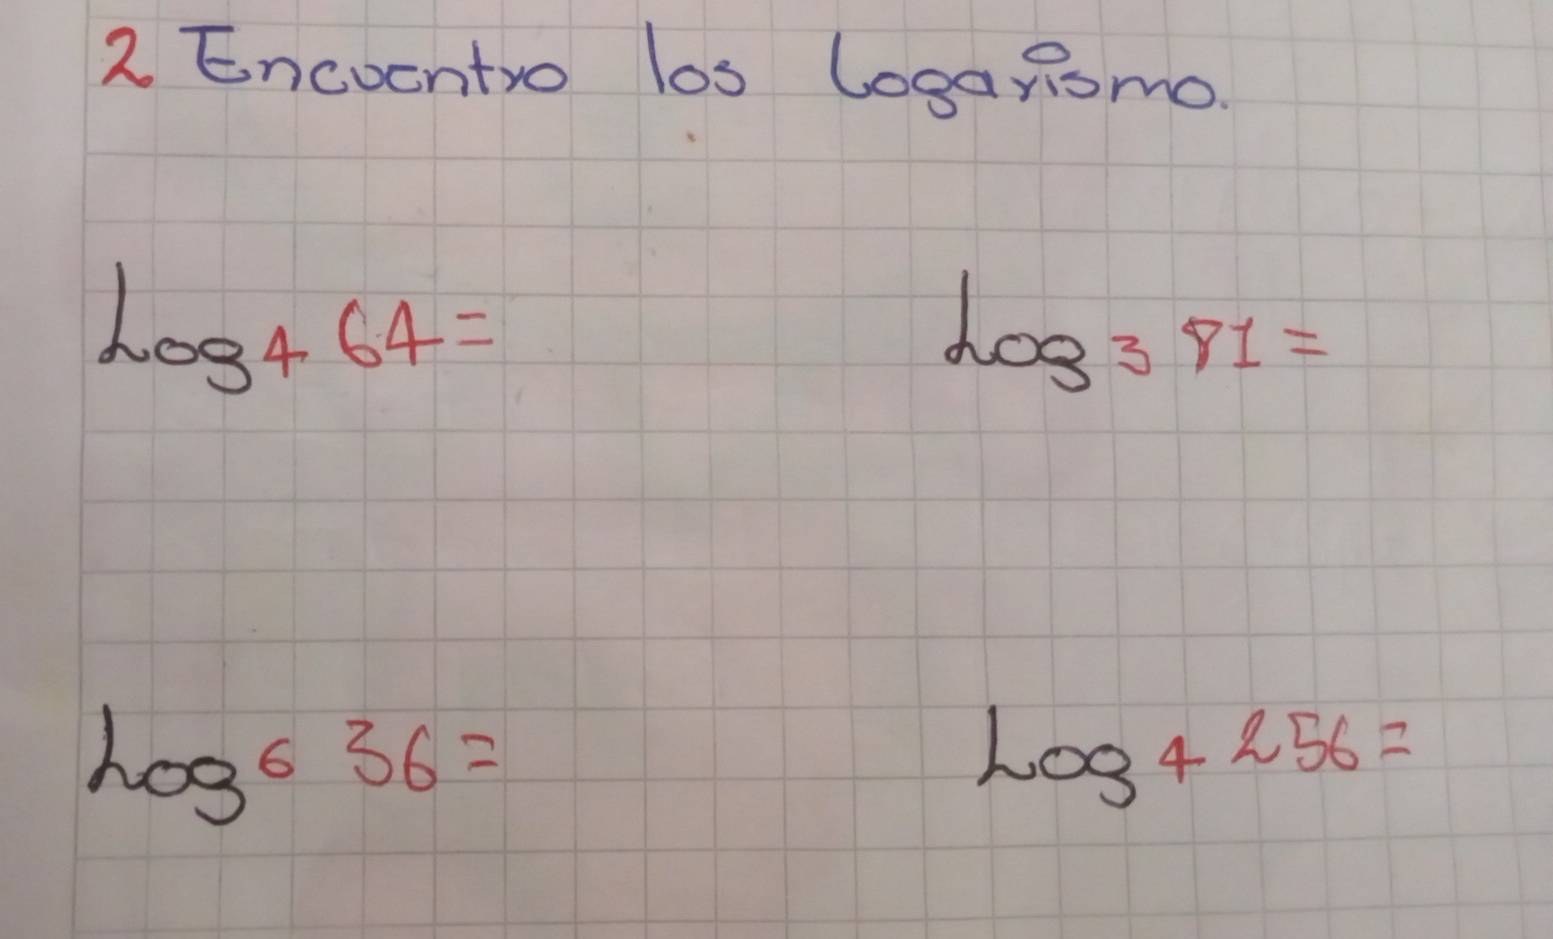 2 Encuentro los logarismo.
Log 4 64 = Log 3 81 =
Log 6 36 = Log 4 256 =